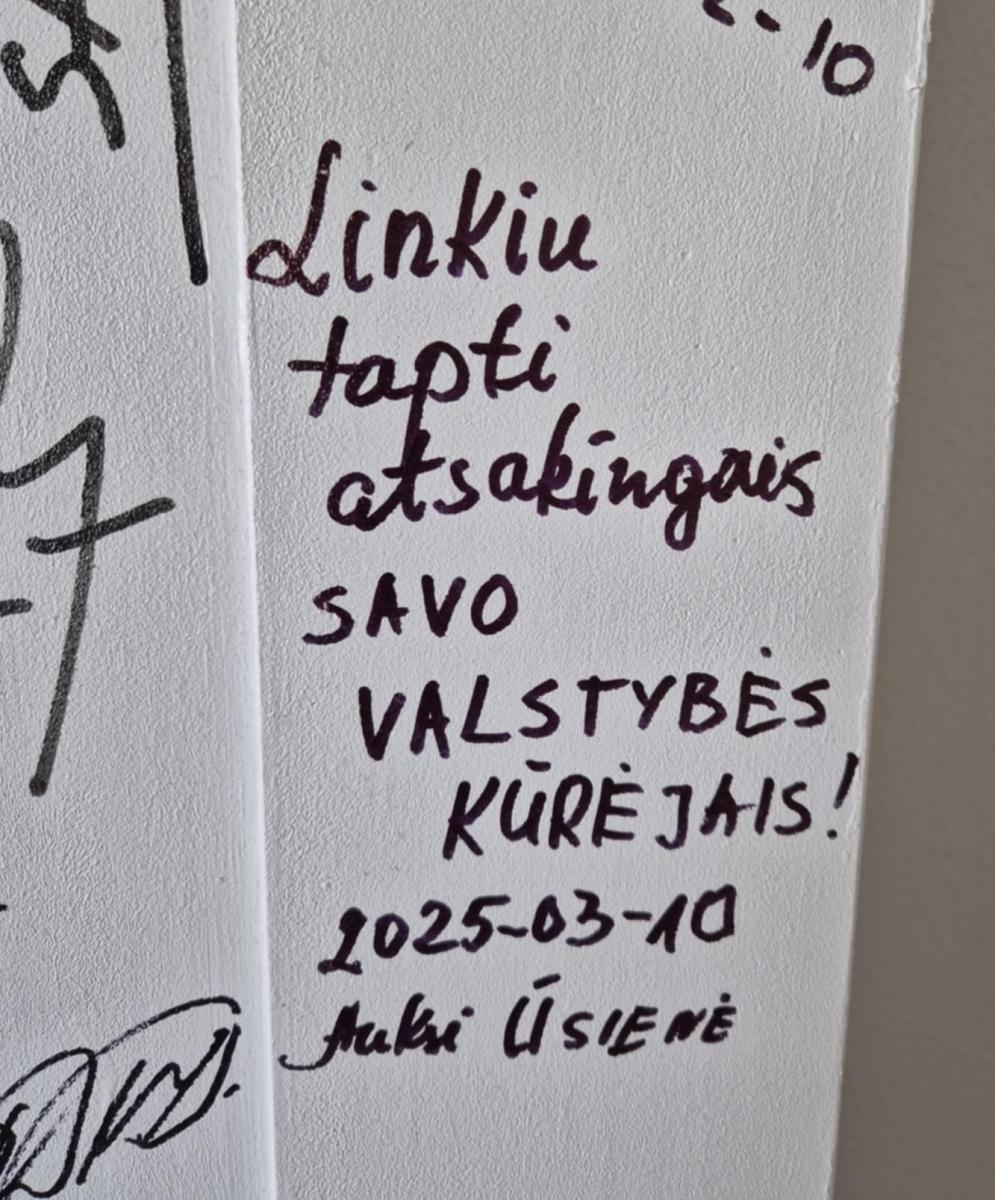 - 10
Linkiu
tapti
atsakingais
SAVO
VALSTYBĖS
KŪRĖJAIS!
2025-03-10
Auksė ŪSIENĖ
7